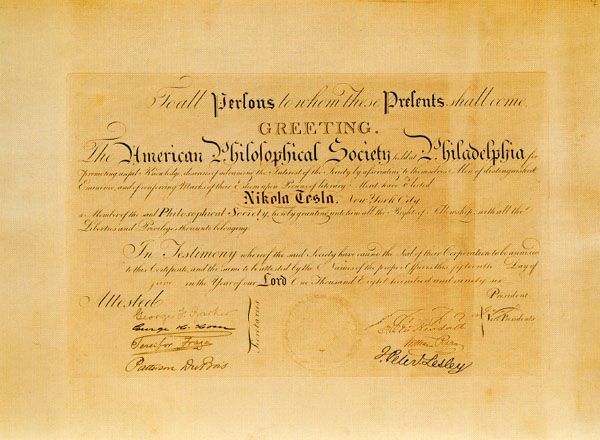 To all Persons to whom these Presents shall come
GREETING.
The American Philosophical Society held at Philadelphia for
Promoting useful Knowledge, desirous of advancing the Interest of the Society by associating to themselves Men of distinguished
Eminence, and of conferring Marks of their Esteem upon Persons of literary Merit have elected
Nikola Tesla. New York City.
a Member of the said Philosophical Society, hereby granting unto him all the Right of Fellowship, with all the
Liberties and Privileges thereunto belonging.
In Testimony whereof the said Society have caused the Seal of their Corporation to be annexed
to this Certificate, and the same to be attested by the Names of the proper Officers this fifteenth Day of
in the Year of our Lord One Thousand Eight hundred and ninety six
President
Attested
Vice Presidents
George F. Barker
Secretaries
Patterson DuBois
J. Peter Lesley